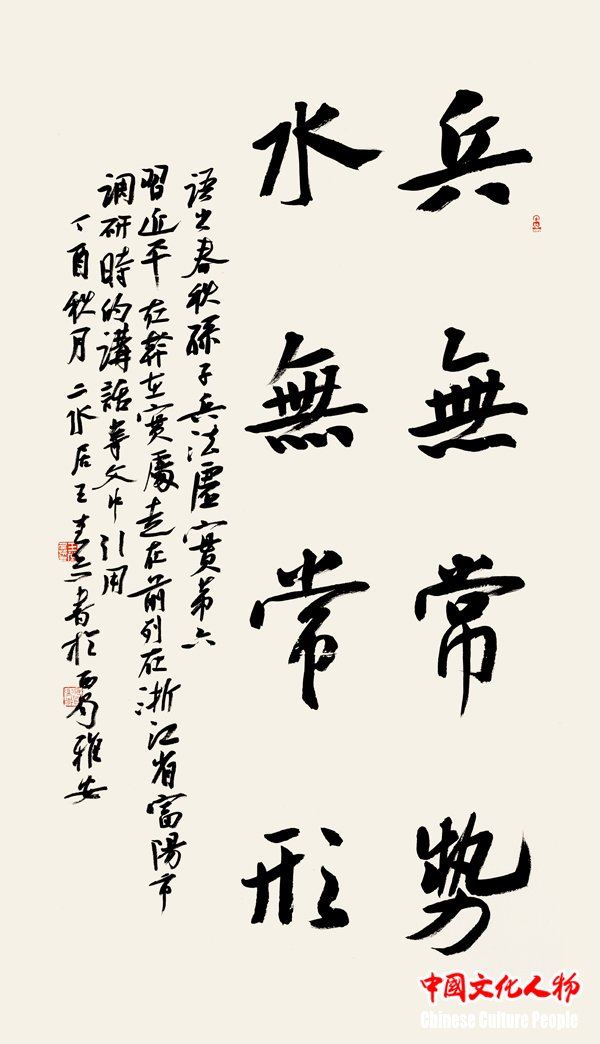 兵無常勢
水無常形
語出春秋孫子兵法虛實第六
習近平在幹在實處走在前列在浙江省富陽市
調研時的講話等文中引用
丁酉秋月二水居王書於西蜀雅安
中國文化人物
Chinese Culture People